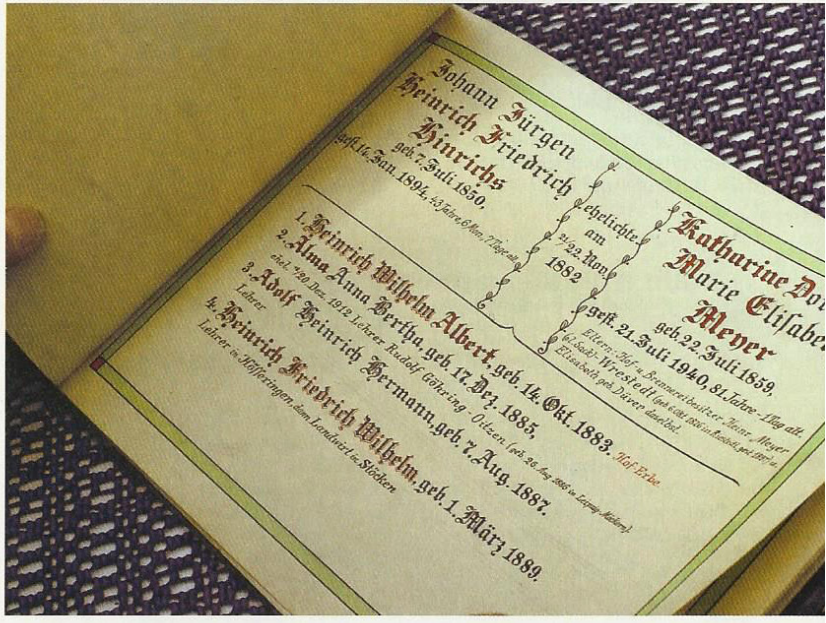 Johann Jürgen
Heinrich Friedrich
Hinrichs
geb. 7. Juli 1850,
gest. 14. Jan. 1894, 43 Jahre, 6 Mon. 7 Tage alt
ehelichte
am
21/22. Nov.
1882
Katharine
Marie
Meyer
geb. 22. Juli 1859,
gest. 21. Juli 1940, 81 Jahre - 1 Tag alt.
Eltern: Hof- u. Brennereibesitzer Heinr. Meyer
Wrestedt
Elisabeth geb. Düver daselbst.
1. Heinrich Wilhelm Albert, geb. 14. Okt. 1883. Hof-Erbe
2. Alma Anna Bertha, geb. 17. Dez. 1885,
ehel. 20 Dez. 1912 Lehrer Rudolf Göhring-Oitzen
3. Adolf Heinrich Hermann, geb. 7. Aug. 1887.
Lehrer
4. Heinrich Friedrich Wilhelm, geb. 1. März 1889.
Lehrer in Hösseringen, dann Landwirt in Stöcken